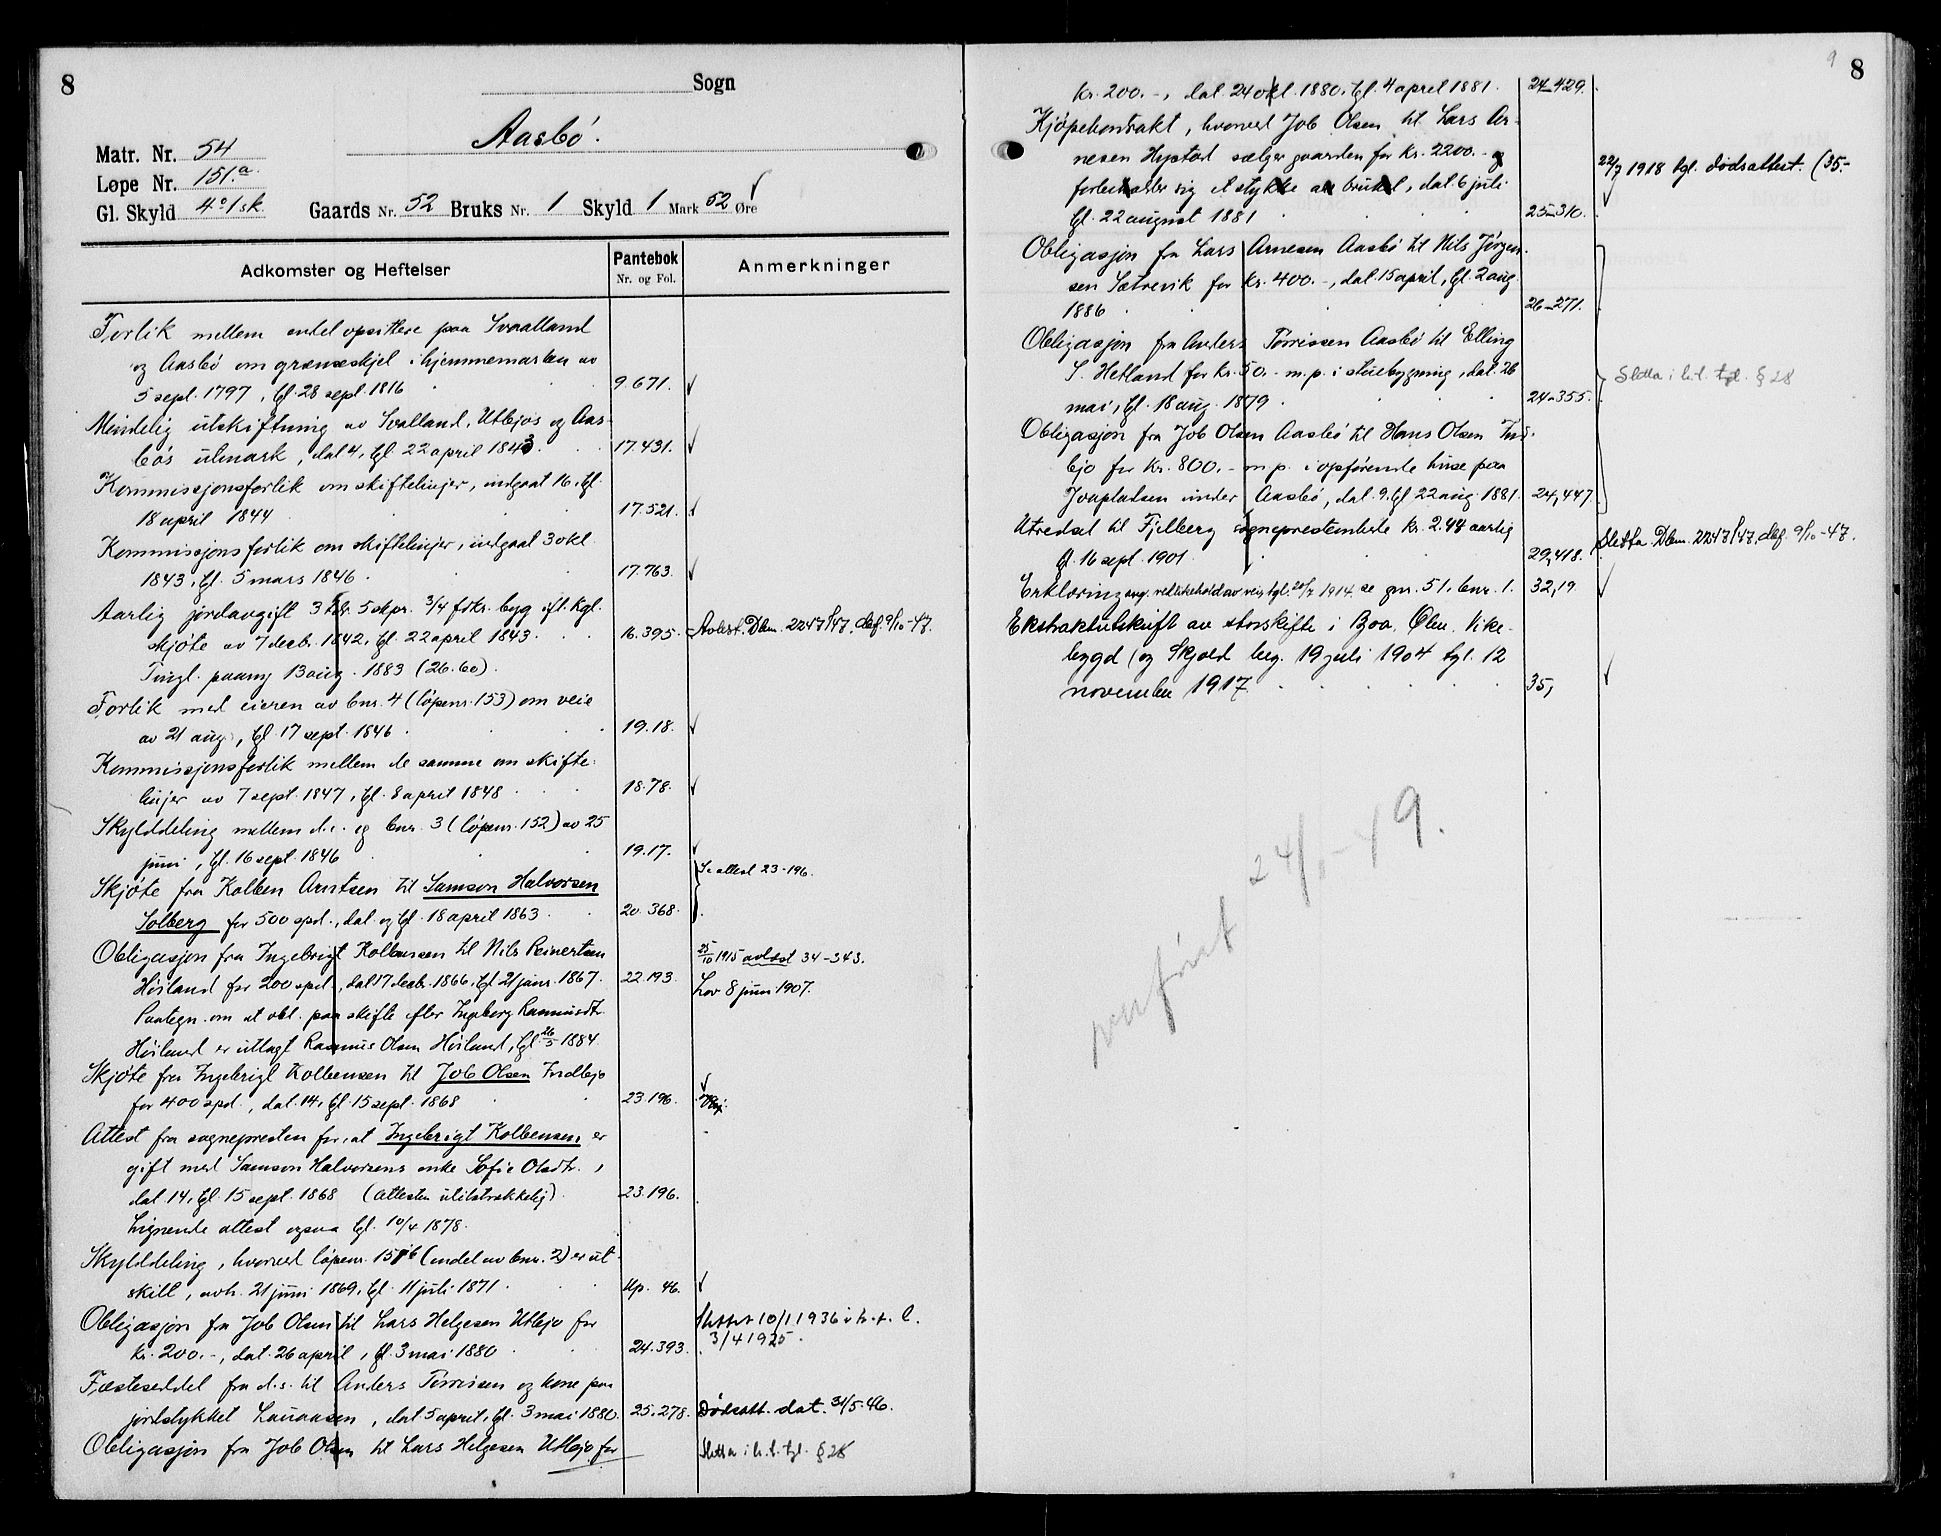 8
Sogn
Aasbö.
Matr. Nr. 54
Løpe Nr. 151.a
Gl. Skyld 4 o 1 sk.
Gaards Nr. 52 Bruks Nr. 1 Skyld 1 Mark 52 Øre
Adkomster og Heftelser
Pantebok
Nr. og Fol.
Anmerkninger
Forlik mellem endel opsittere paa Svaalland
og Aasbö om grænseskjel i hjemmemarken av
5 sept. 1797, tgl. 28 sept. 1816 9.671. ✓
Mindelig utskiftning av Svalland, Utbjos og Aas-
bös utmark, dat 4, tgl. 22 april 1843. 17.431. ✓
Kommissjonsforlik om skiftelinjer, indgaat 16, tgl.
18 april 1844 17.521. ✓
Kommissjonsforlik om skiftelinjer, indgaat 30 kl.
1843, tgl. 5 mars 1846. 17.763. ✓
Aarlig jordavgift 3 tdr. 5 skpr. 3/4 frkr. byg ifl. kgl.
skjöte av 7 decbr. 1842, tgl. 22 april 1843. 16.395. Avløst. Dbn. 2247/47, def. 9/10-47.
Tingl. paany 13 aug. 1883 (26.60).
Forlik med eieren av bnr. 4 (löpenr. 153) om veie
av 21 aug., tgl. 17 sept. 1846. 19.18. ✓
Kommissjonsforlik mellem de samme om skifte-
linjer av 7 sept. 1847, tgl. 8 april 1848 18.78. ✓
Skylddeling mellem d.e. og bnr. 3 (löpenr. 152) av 25
juni, tgl. 16 sept. 1846 19.17. ✓
Skjöte fra Kolben Arntsen til Samson Halvorsen Se attest 23-196.
Solberg for 500 spd., dat. og tgl. 18 april 1863 20.368.
Obligasjon fra Ingebrigt Kolbensen til Nils Reinertsen 25/10 1915 avlöst 34-343.
Höiland for 200 spd., dat 17 decb. 1866, tgl 21 janr. 1867. 22.193. Lov 8 juni 1907.
Paategn. om at obl. paa skifte efter Ingeborg Rasmusdtr.
Höiland er utlagt Rasmus Olsen Höiland, tgl 26/5 1884
Skjöte fra Ingebrigt Kolbensen til Job Olsen Indbjo
for 400 spd., dat. 14, tgl. 15 sept. 1868 23.196. ✓
Attest fra sognepresten for, at Ingebrigt Kolbensen er
gift med Samson Halvorsens enke Sofie Olsdtr.,
dat. 14, tgl. 15 sept. 1868 (attesten utilstrækkelig). 23.196.
Lignende attest ogsaa tgl. 10/4 1878.
Skylddeling, hvorved löpenr. 151b (endel av bnr. 2) er ut-
skilt, avh. 21 juni 1869, tgl. 11 juli 1871. Up. 46. ✓
Obligasjon fra Job Olsen til Lars Helgesen Utbjo for Slettet 10/1 1936 i h.t. l.
kr. 200.-, dat. 26 april, tgl. 3 mai 1880 24.393. 3/4 1925.
Fæsteseddel fra d.s. til Anders Törrissen og kone paa
jordstykket Lauaasen, dat 5 april, tgl. 3 mai 1880. 25.278. Dödsatt. dat. 31/5-46.
Obligasjon fra Job Olsen til Lars Helgesen Utbjo for Sletta i h.t. tgl. § 28
9
8
kr. 200.-, dat. 24 okt. 1880, tgl. 4 april 1881. 24-429.
Kjöpekontrakt, hvorved Job Olsen til Lars Ar-
nesen Hystad sælger gaarden for kr. 2200.- og 22/7 1918 tgl. dödsattest. (35-
forbeholder sig et stykke av bruket, dat. 6 juli
tgl. 22 august 1881 25-310.
Obligasjon fra Lars Arnesen Aasbö til Nils Jörgen-
sen Sætrevik for kr. 400.-, dat. 15 april, tgl. 2 aug.
1886 26-271.
Obligasjon fra Anders Törrissen Aasbö til Elling
S. Hetland for kr. 50.- m.p. i stuebygning, dat. 26 Sletta i h.t. tgl. § 28
mai, tgl. 18 aug. 1879 24-355.
Obligasjon fra Job Olsen Aasbö til Hans Olsen Ind-
bjo for kr. 800.- m.p. i opförende huse paa
Ivaplatsen under Aasbö, dat. 9, tgl 22 aug. 1881. 24,447.
Utredsel til Fjelberg sogneprestembede kr. 2.48 aarlig
tgl. 16 sept. 1901 29,418. Sletta Dbn. 2247/47, def. 9/10-47.
Erklæring ang. vedlikehold av vei, tgl. 20/7 1914, se gnr. 51, bnr. 1. 32,19 ✓
Ekstraktutskrift av storskifte i Boa, Ölen, Vike-
bygd og Skjold beg. 19 juli 1904 tgl. 12
november 1917. 35, ✓
overfört 24/8-49.